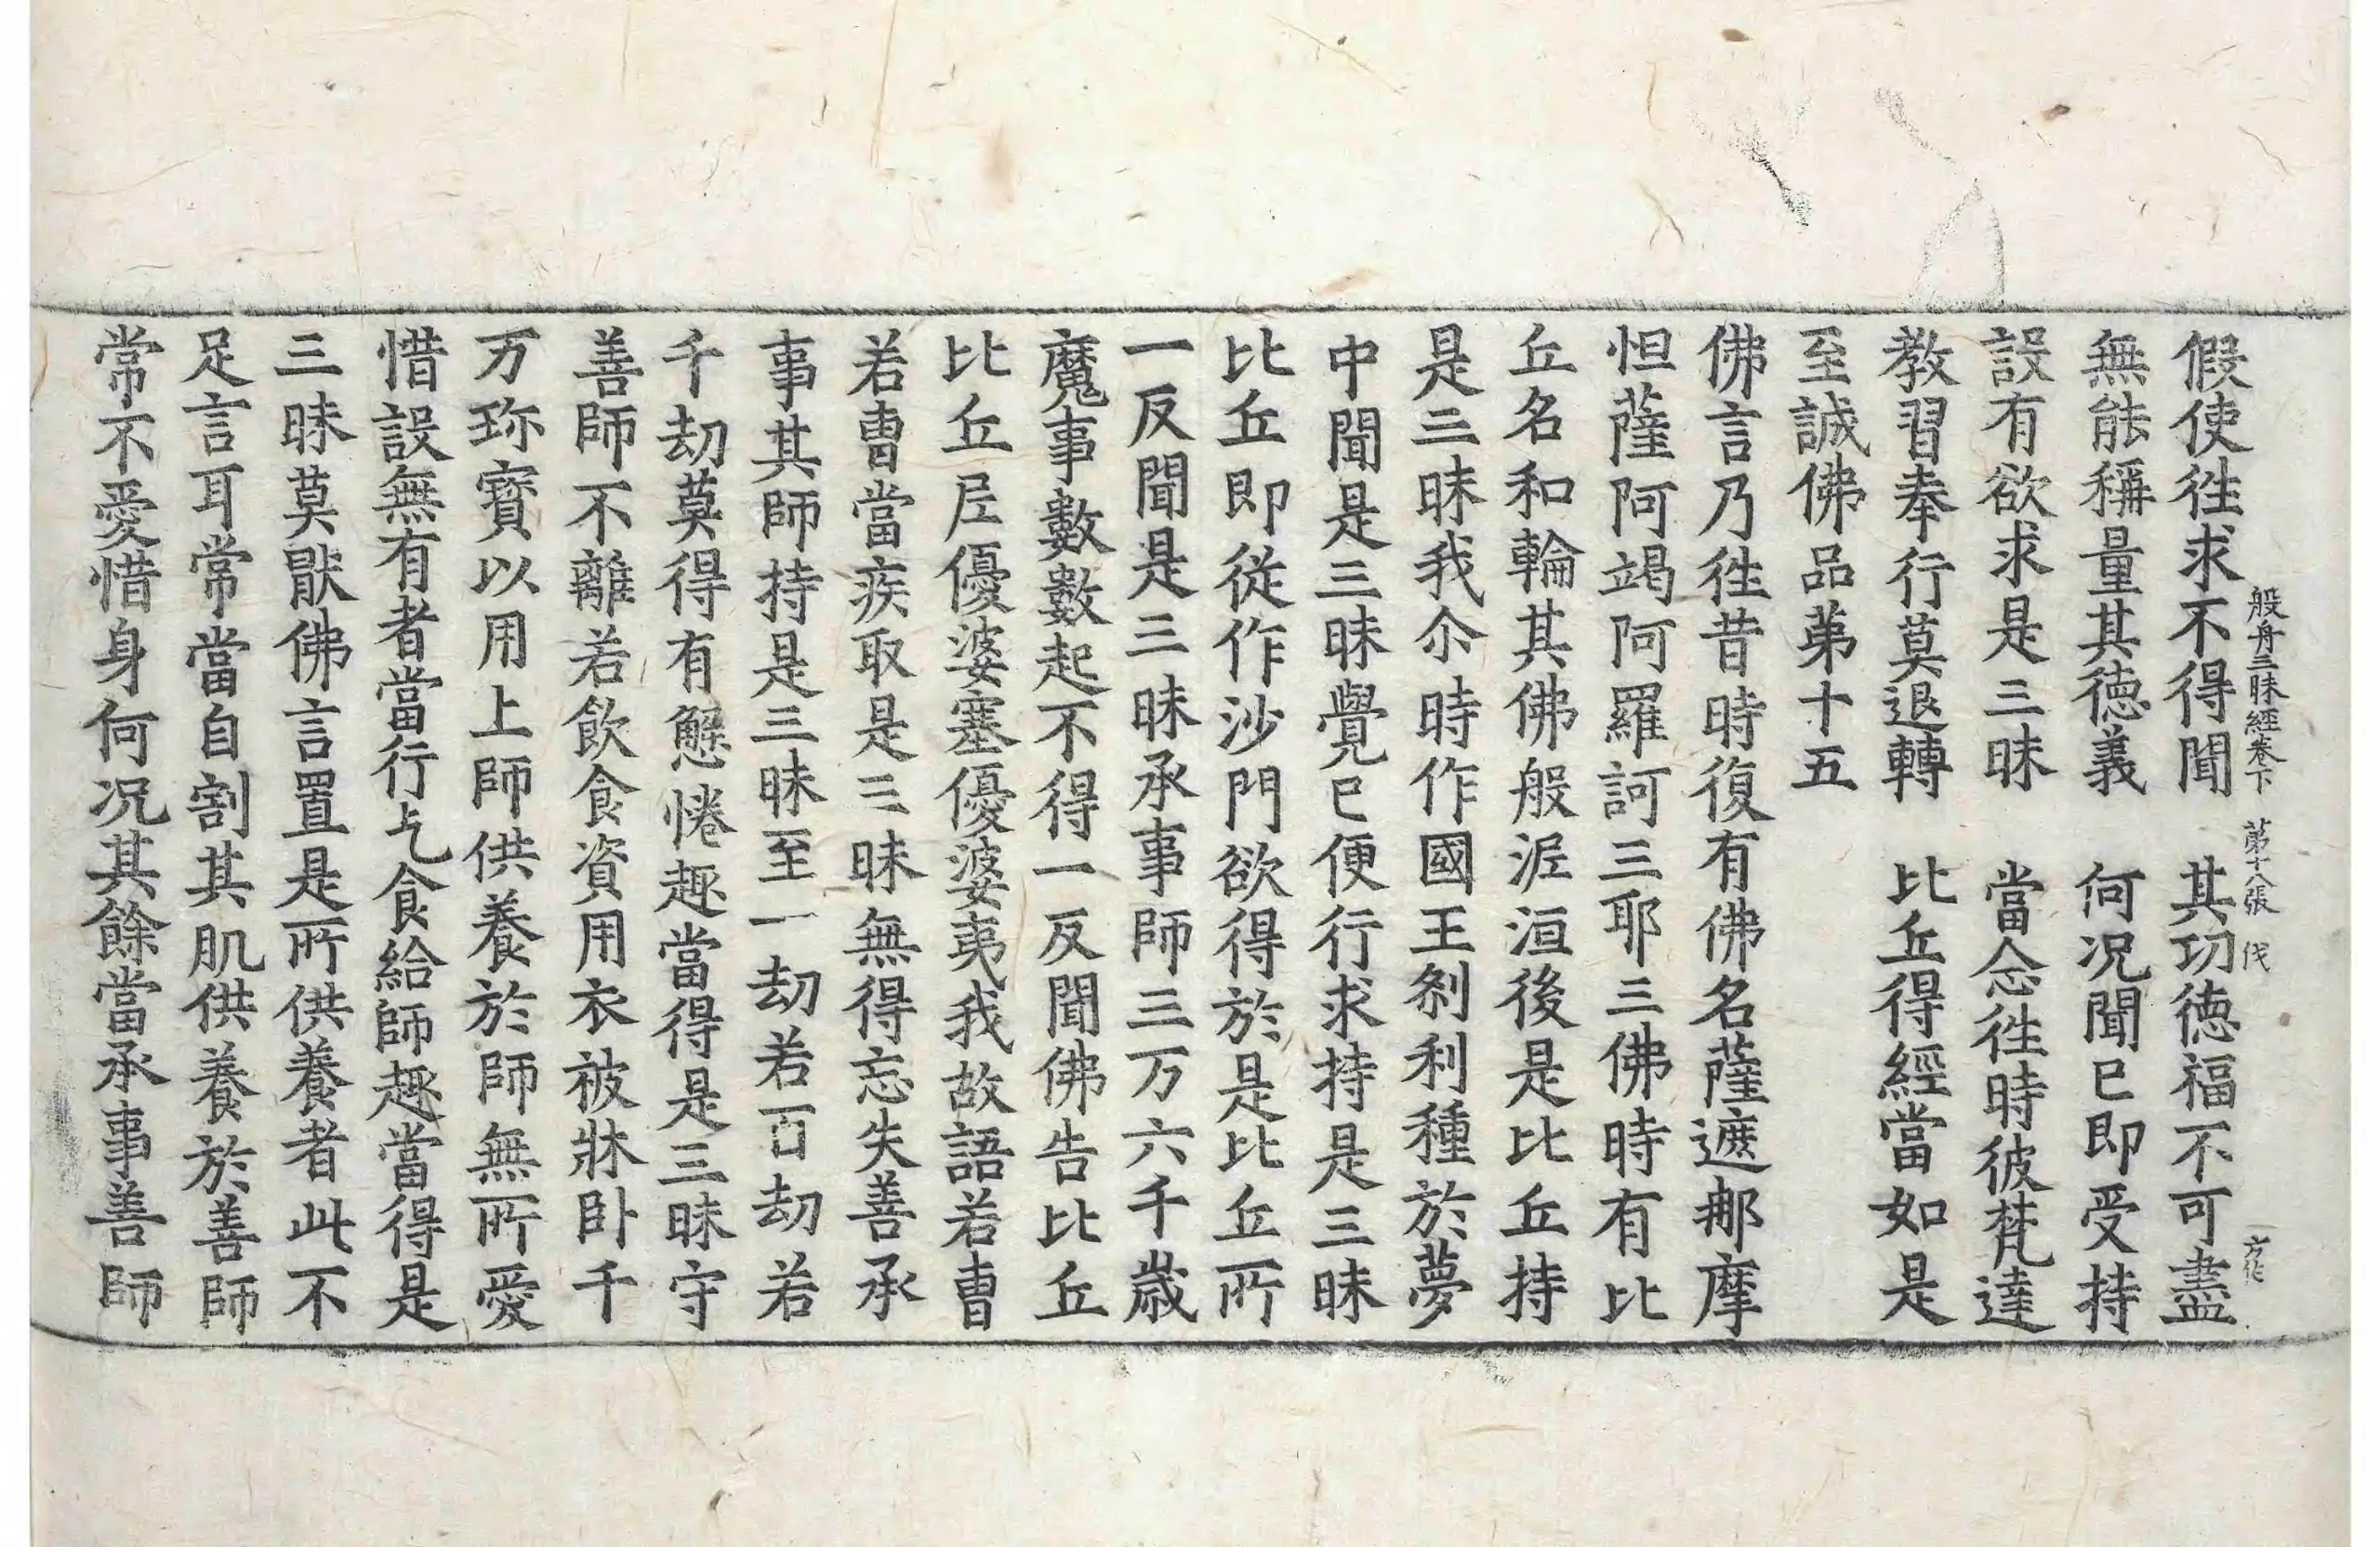 假使徃求不得聞　其功徳福不可盡
般舟三昧經卷下　苐十八張　伐
無能稱量其徳義　何况聞已即受持
設有欲求是三昧　當念徃時彼梵達
教習奉行莫退轉　比丘得經當如是
至誠佛品苐十五
佛言乃徃昔時復有佛名薩遮那摩
怛薩阿竭阿羅訶三耶三佛時有比
丘名和輪其佛般泥洹後是比丘持
是三昧我尒時作國王剎利種於夢
中聞是三昧覺已便行求持是三昧
比丘即從作沙門欲得於是比丘所
一反聞是三昧承事師三万六千歳
魔事數數起不得一反聞佛告比丘
比丘尼優婆塞優婆夷我故語若曹
若曹當疾取是三昧無得忘失善承
事其師持是三昧至一劫若百劫若
千劫莫得有懈惓趣當得是三昧守
善師不離若飲食資用衣被牀卧千
万珎寳以用上師供養於師無所愛
惜設無有者當行乞食給師趣當得是
三昧莫猒佛言置是所供養者此不
足言耳常當自割其肌供養於善師
常不愛惜身何况其餘當承事善師